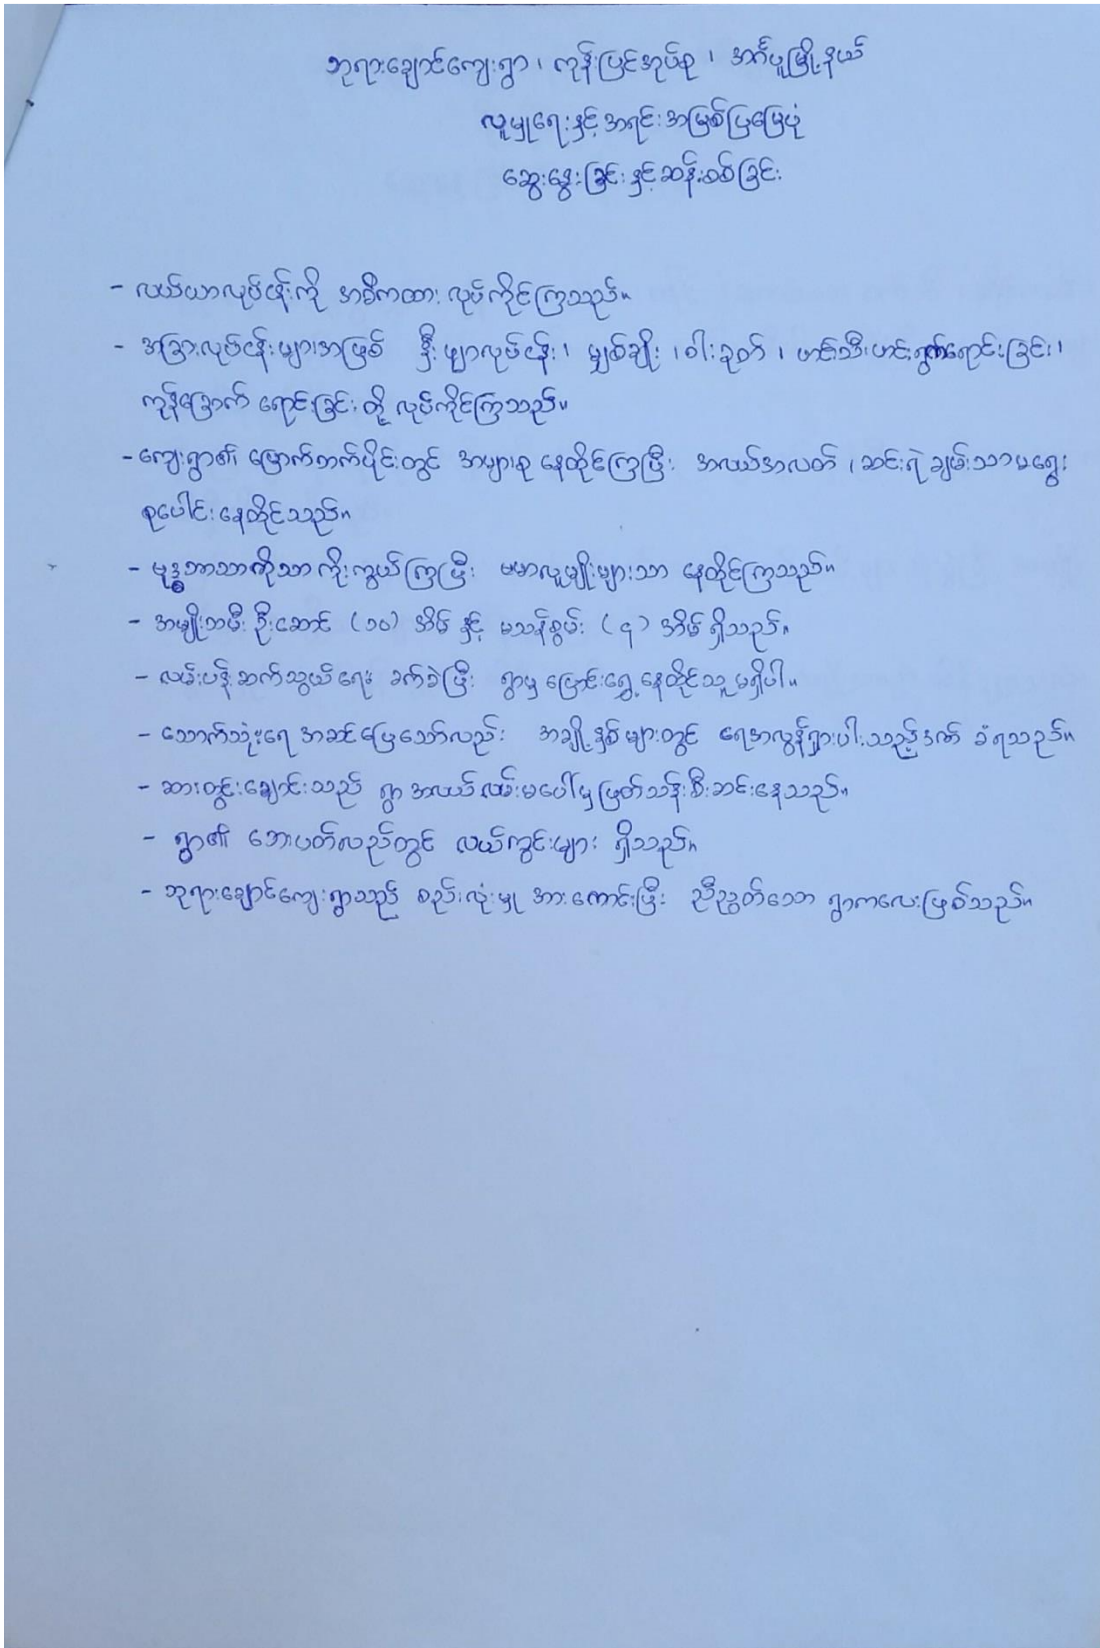 ဘုရားချောင်ကျေးရွာ ၊ ကုန်းပြင်အုပ်စု ၊ အင်္ဂပူမြို့နယ်
လူမှုရေးနှင့်အရင်းအမြစ်ပြမြေပုံ
ဆွေးနွေးခြင်းနှင့်ဆန်းစစ်ခြင်း
- လယ်ယာလုပ်ငန်းကို အဓိကထား လုပ်ကိုင်ကြသည်။
- အခြားလုပ်ငန်းများအဖြစ် နှီးဖျာလုပ်ငန်း၊ မျှစ်ချိုး ၊ ဝါးခုတ် ၊ ဟင်းသီးဟင်းရွက်ရောင်းခြင်း၊
ကုန်ခြောက် ရောင်းခြင်းတို့ လုပ်ကိုင်ကြသည်။
- ကျေးရွာ၏ မြောက်ဘက်ပိုင်းတွင် အများစု နေထိုင်ကြပြီး အလယ်အလတ် ၊ ဆင်းရဲ ချမ်းသာမရွေး
စုပေါင်းနေထိုင်သည်။
- ဗုဒ္ဓဘာသာကိုသာ ကိုးကွယ်ကြပြီး ဗမာလူမျိုးများသာ နေထိုင်ကြသည်။
- အမျိုးသမီး ဦးဆောင် (၁၀) အိမ် နှင့် မသန်စွမ်း (၄) အိမ် ရှိသည်။
- လမ်းပန်းဆက်သွယ်ရေး ခက်ခဲပြီး ရွာမှ ပြောင်းရွှေ့နေထိုင်သူ မရှိပါ။
- သောက်သုံးရေ အဆင်ပြေသော်လည်း အချို့နှစ်များတွင် ရေအလွန်ရှားပါးသည့်ဒဏ် ခံရသည်။
- ဆားတွင်းချောင်းသည် ရွာ အလယ်လမ်းမပေါ်မှဖြတ်သန်းစီးဆင်းနေသည်။
- ရွာ၏ ဘေးပတ်လည်တွင် လယ်ကွင်းများ ရှိသည်။
- ဘုရားချောင်ကျေးရွာသည် စည်းလုံးမှု အားကောင်းပြီး ညီညွတ်သော ရွာကလေးဖြစ်သည်။